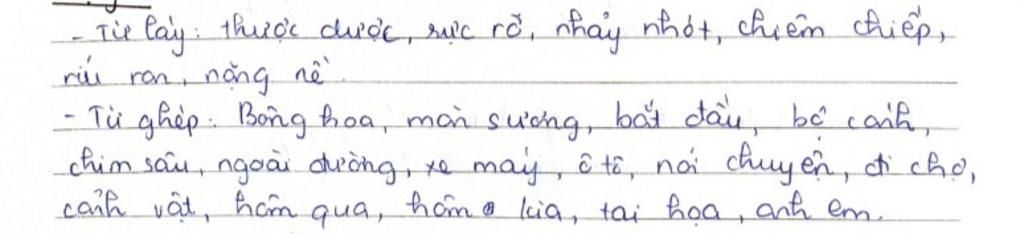 - Từ láy: thược dược, rực rỡ, nhảy nhót, chiêm chiếp,
ríu ran, nặng nề.
- Từ ghép: Bông hoa, màn sương, bắt đầu, bố cảnh,
chim sâu, ngoài đường, xe máy, ô tô, nói chuyện, đi chợ,
cảnh vật, hôm qua, hôm kia, tai họa, anh em.